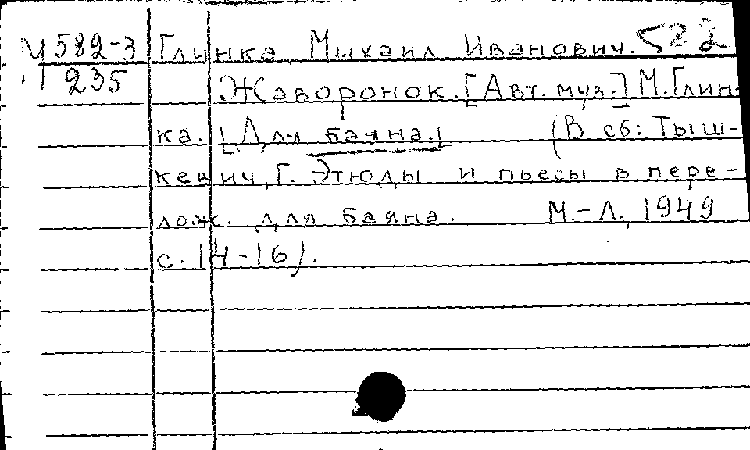 М 582-3 Глинка, Михаил Иванович. 522
235 Жаворонок. [Авт. муз.] М. Глин-
ка. [Для баяна.] (В сб: Тыш-
кевич, Г. Этюды и пьесы в пере-
лож. для баяна. М-Л., 1949
с. 14-16).